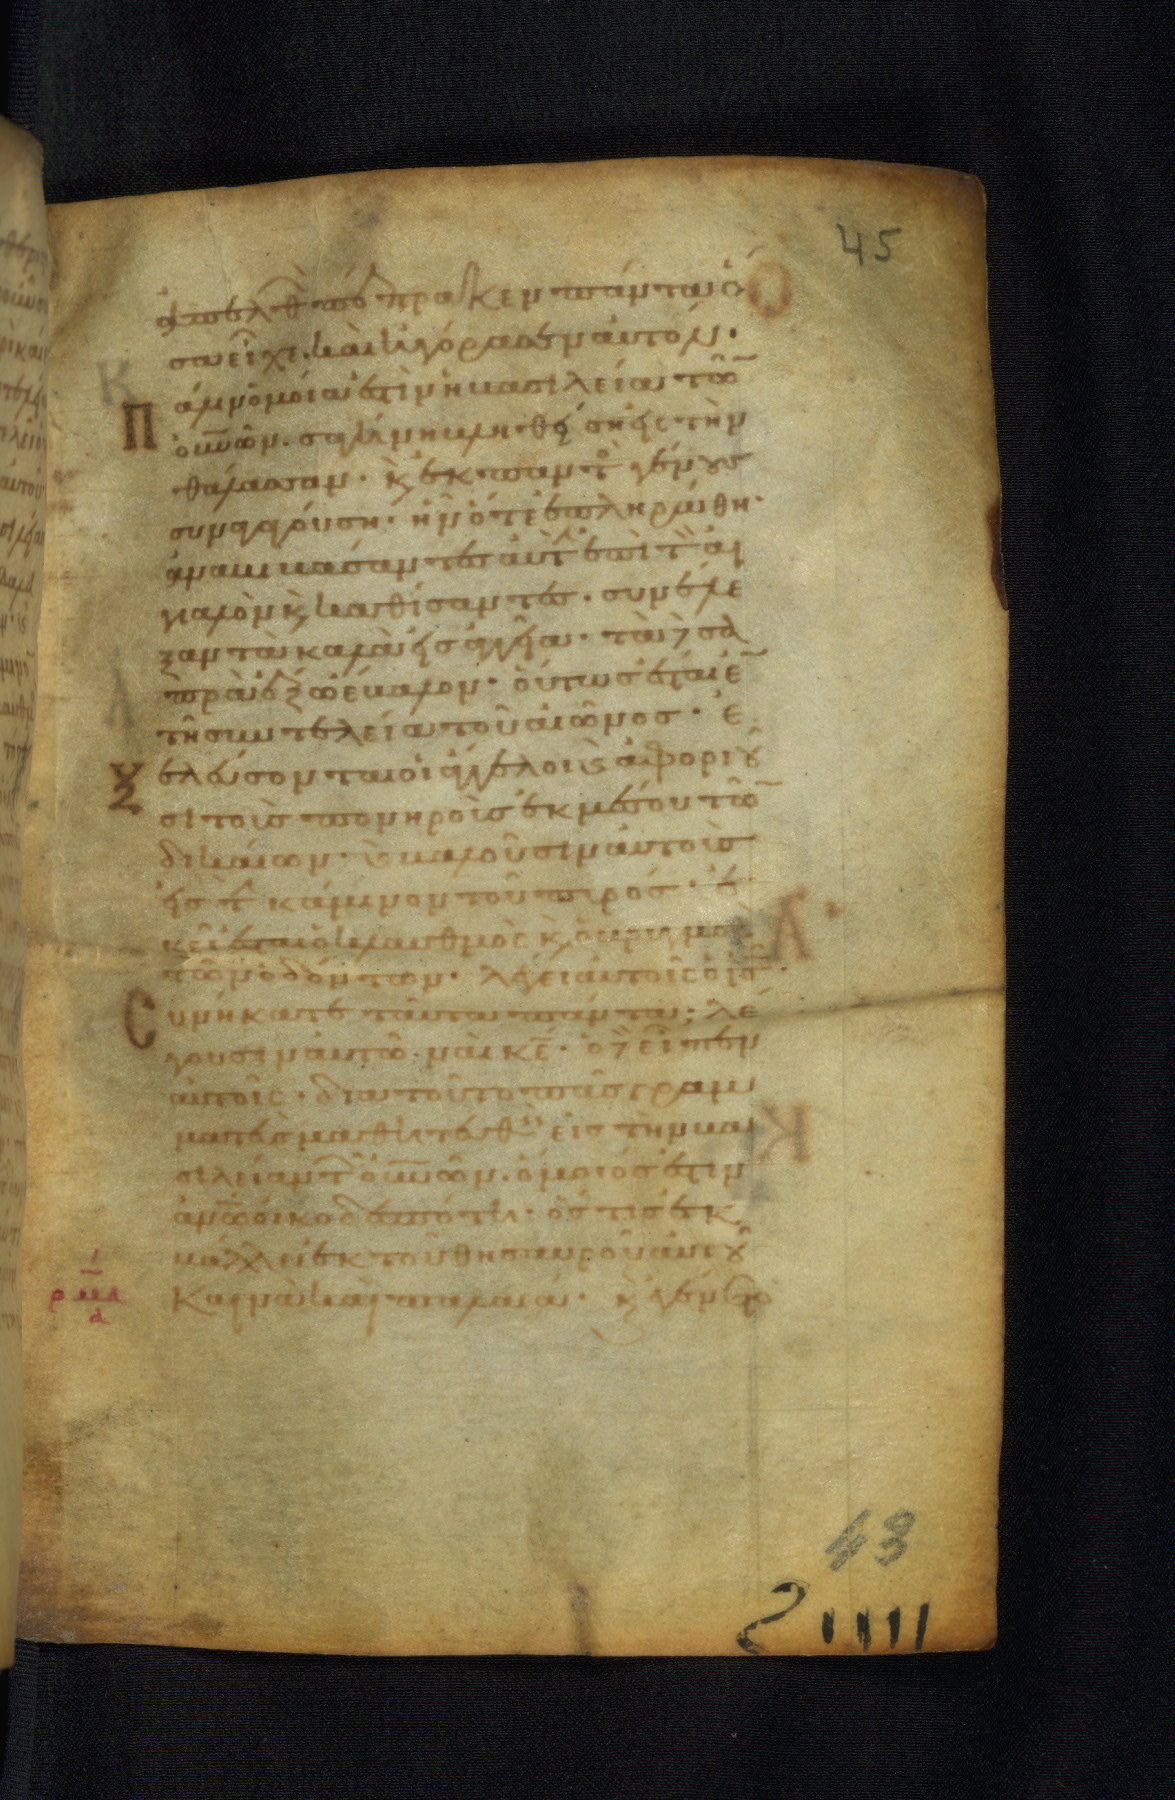 45
ἀπελθὼν πέπρακεν πάντα ὅ
σα εἶχε. καὶ ἠγόρασεν αὐτόν.
Πάλιν ὁμοία ἐστὶν ἡ βασιλεία τῶν
οὐνῶν. σαγήνῃ βληθείσῃ εἰς τὴν
θάλασσαν. κ ἐκ παντὸς γένους
συναγαγούσῃ. ἣν ὅτε ἐπληρώθη.
ἀναβιβάσαντες αὐτὴν ἐπὶ τὸν αἰ
γιαλὸν κ καθίσαντες. συνέλε
ξαν τὰ καλὰ εἰς ἀγγεῖα. τὰ δὲ σα
πρὰ ἔξω ἔβαλον. οὕτως ἔσται ἐν
τῇ συντελείᾳ τοῦ αἰῶνος. ἐ
ξελεύσονται οἱ ἄγγελοι κ ἀφοριοῦ
σι τοὺς πονηροὺς ἐκ μέσου τῶν
δικαίων. κ βαλοῦσιν αὐτοὺς
εἰς τὴν κάμινον τοῦ πυρός. ἐ
κεῖ ἔσται ὁ κλαυθμὸς κ ὁ βρυγμὸς
τῶν ὀδόντων. λέγει αὐτοῖς ὁ ις.
Συνήκατε ταῦτα πάντα; λέ
γουσιν αὐτῶ. ναὶ κε. ὁ δὲ εἶπεν
αὐτοῖς. διὰ τοῦτο πᾶς γραμ
ματεὺς μαθητευθεὶς εἰς τὴν βα
σιλείαν τῶν οὐνῶν. ὅμοιός ἐστιν
ἀνω οἰκοδεσπότῃ. ὅστις ἐκ
βάλλει ἐκ τοῦ θησαυροῦ αὐτοῦ
καινὰ καὶ παλαιά. κ ἐγένετο
43